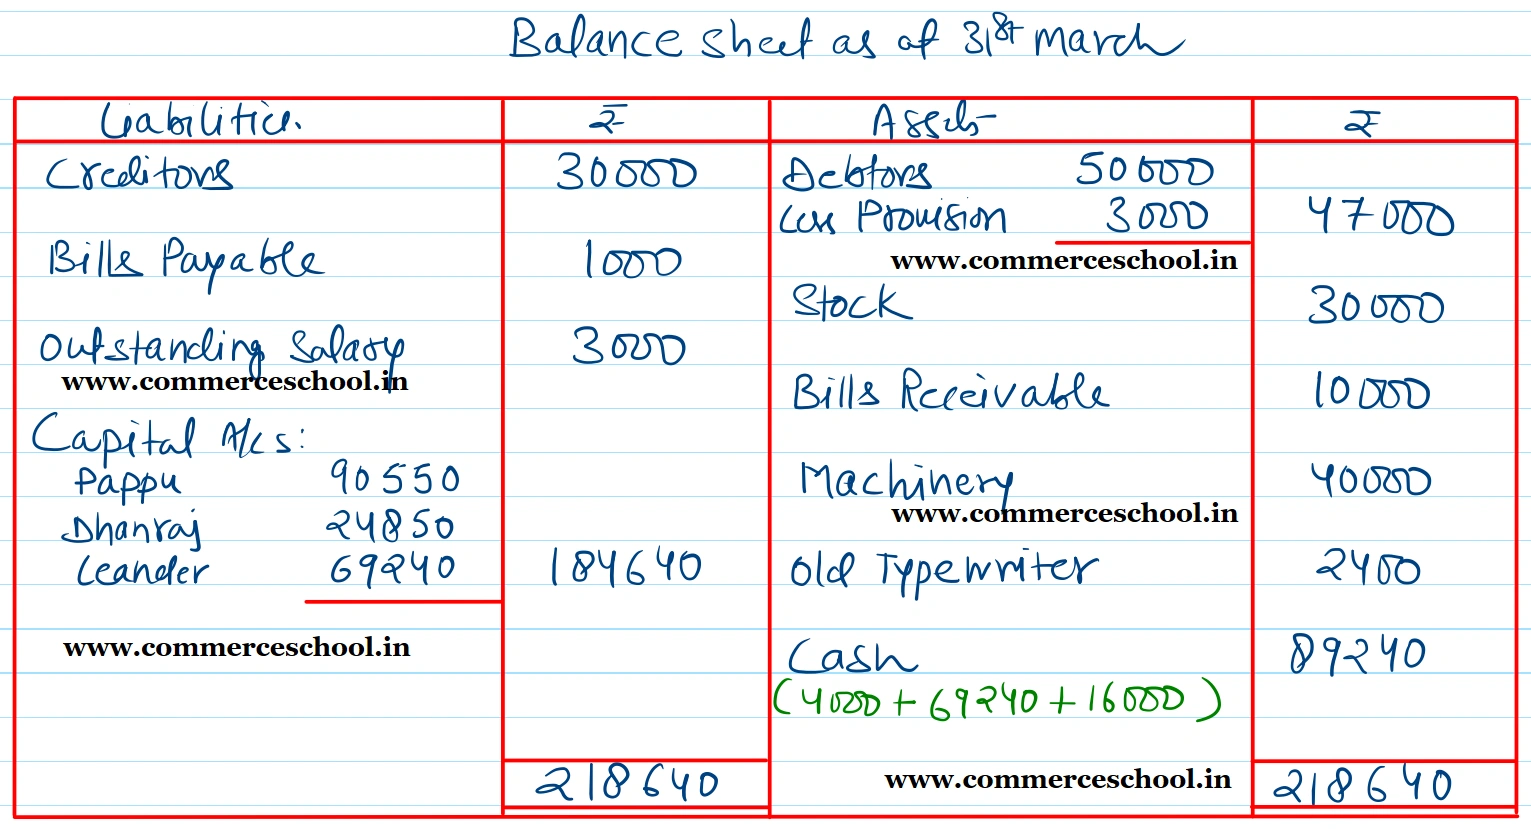 Balance sheet as at 31st March
Liabilities. ₹ Assets ₹
Creditors 30000 Debtors 50000
Less Provision 3000 47000
Bills Payable 1000 www.commerceschool.in
Stock 30000
Outstanding Salary 3000
www.commerceschool.in
Bills Receivable 10000
Capital A/cs:
Pappu 90550 Machinery 40000
www.commerceschool.in
Dhanraj 24850
Leander 69240 184640 Old Typewriter 2400
www.commerceschool.in
Cash 89240
(4000 + 69240 + 16000)
218640 www.commerceschool.in 218640